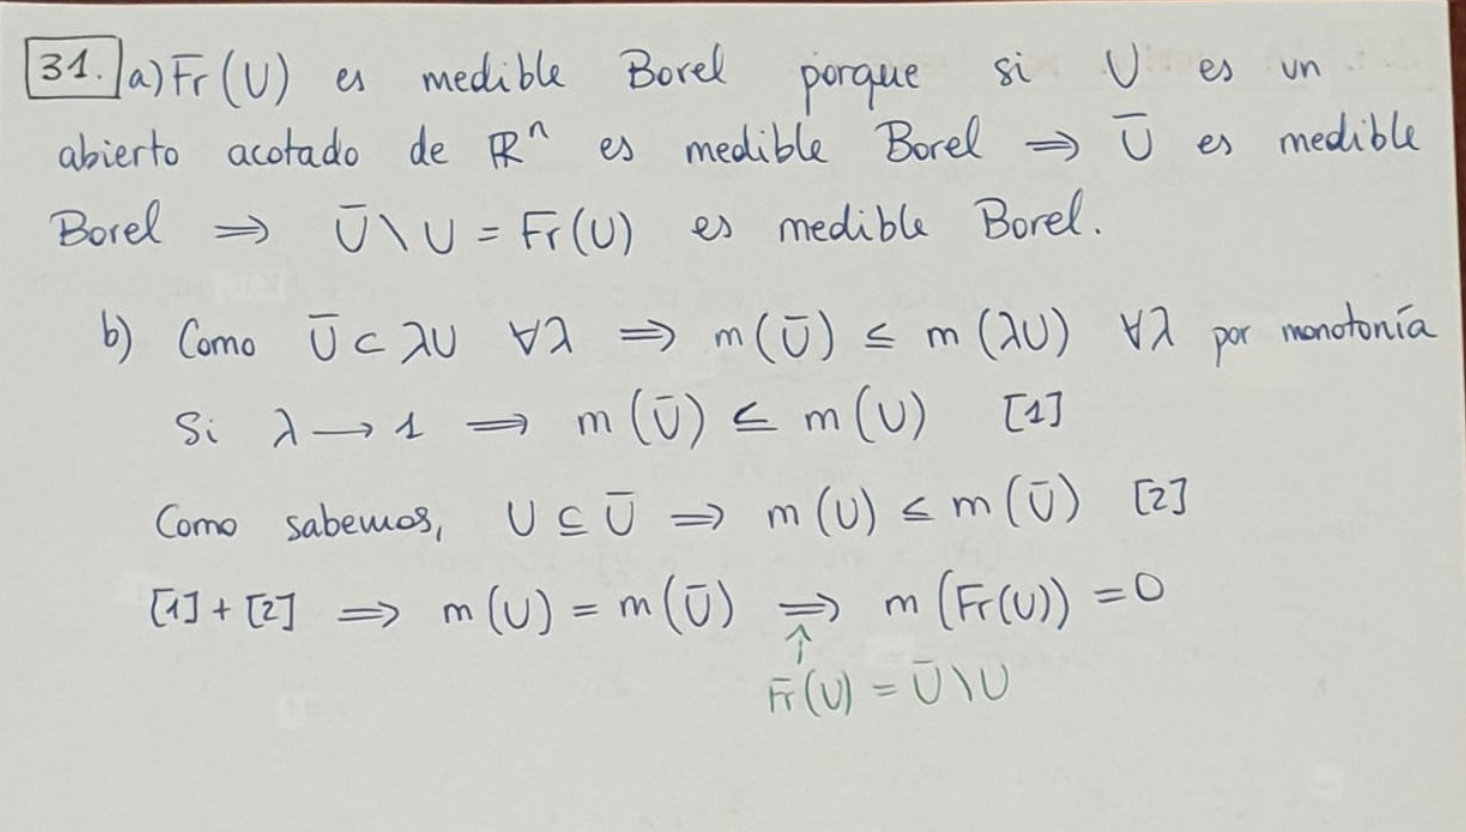 31. a) Fr(U) es medible Borel porque si U es un
abierto acotado de ℝⁿ es medible Borel ⟹ Ū es medible
Borel ⟹ Ū \ U = Fr(U) es medible Borel.
b) Como Ū ⊂ λU ∀λ ⟹ m(Ū) ≤ m(λU) ∀λ por monotonía
Si λ → 1 ⟹ m(Ū) ≤ m(U) [1]
Como sabemos, U ⊆ Ū ⟹ m(U) ≤ m(Ū) [2]
[1] + [2] ⟹ m(U) = m(Ū) ⟹ m(Fr(U)) = 0
↑
Fr(U) = Ū \ U